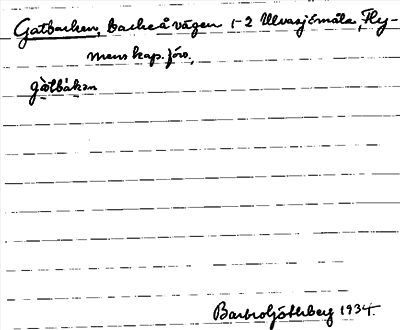 Gatbacken, Backe å vägen 1-2 Ulvasjömåla, Fly-
mens kap. förs.
gàtbákən
Barbro Söderberg 1934.